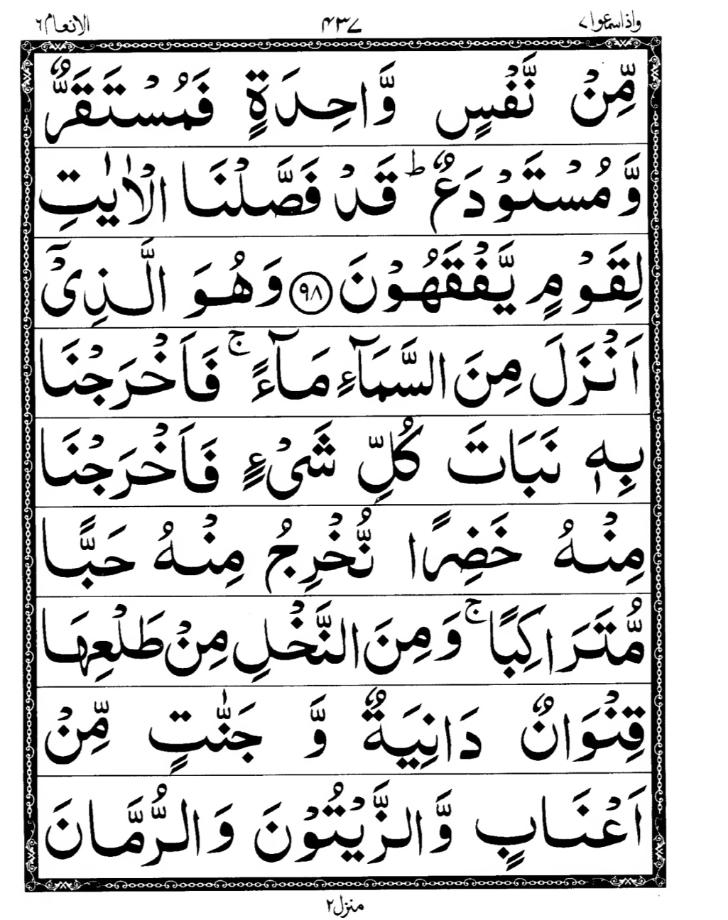 واذاسمعوا۷ ۴۳۷ الانعام۶
مِّنۡ نَّفۡسٍ وَّاحِدَةٍ فَمُسۡتَقَرٌّ
وَّمُسۡتَوۡدَعٌ ؕ قَدۡ فَصَّلۡنَا الۡاٰيٰتِ
لِقَوۡمٍ يَّفۡقَهُوۡنَ ﴿۹۸﴾ وَهُوَ الَّذِىۡۤ
اَنۡزَلَ مِنَ السَّمَآءِ مَآءً ۚ فَاَخۡرَجۡنَا
بِهٖ نَبَاتَ كُلِّ شَىۡءٍ فَاَخۡرَجۡنَا
مِنۡهُ خَضِرًا نُّخۡرِجُ مِنۡهُ حَبًّا
مُّتَرَاكِبًا ۚ وَمِنَ النَّخۡلِ مِنۡ طَلۡعِهَا
قِنۡوَانٌ دَانِيَةٌ وَّ جَنّٰتٍ مِّنۡ
اَعۡنَابٍ وَّالزَّيۡتُوۡنَ وَالرُّمَّانَ
منزل۲